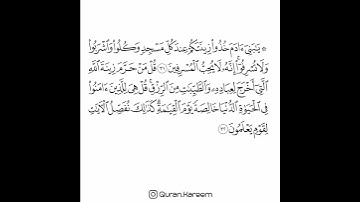 ۞ يَٰبَنِىٓ ءَادَمَ خُذُوا۟ زِينَتَكُمْ عِندَ كُلِّ مَسْجِدٍ وَكُلُوا۟ وَٱشْرَبُوا۟
وَلَا تُسْرِفُوٓا۟ إِنَّهُۥ لَا يُحِبُّ ٱلْمُسْرِفِينَ ٣١ قُلْ مَنْ حَرَّمَ زِينَةَ ٱللَّهِ
ٱلَّتِىٓ أَخْرَجَ لِعِبَادِهِۦ وَٱلطَّيِّبَٰتِ مِنَ ٱلرِّزْقِ قُلْ هِىَ لِلَّذِينَ ءَامَنُوا۟
فِى ٱلْحَيَوٰةِ ٱلدُّنْيَا خَالِصَةً يَوْمَ ٱلْقِيَٰمَةِ كَذَٰلِكَ نُفَصِّلُ ٱلْءَايَٰتِ
لِقَوْمٍ يَعْلَمُونَ ٣٢
Quran.Kareem